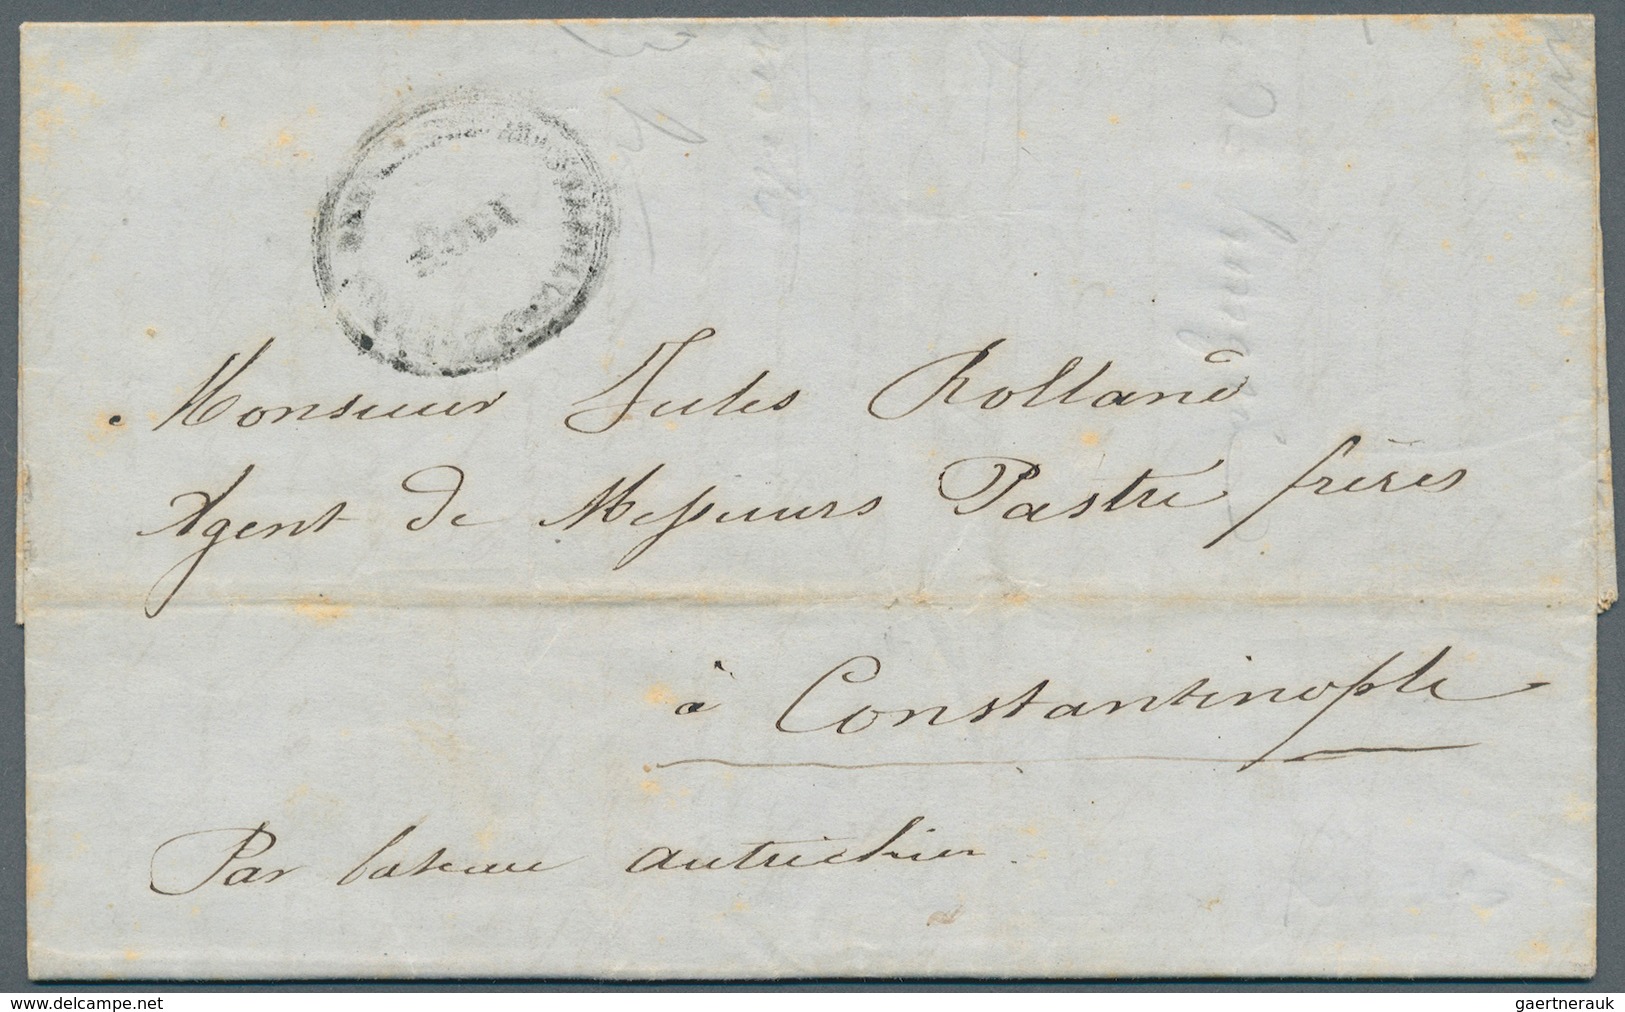 Monsieur Jules Rolland
Agent de Messieurs Pastré frères
à Constantinople
Par bateau autrichien
delcampe.net
gaertnerauk